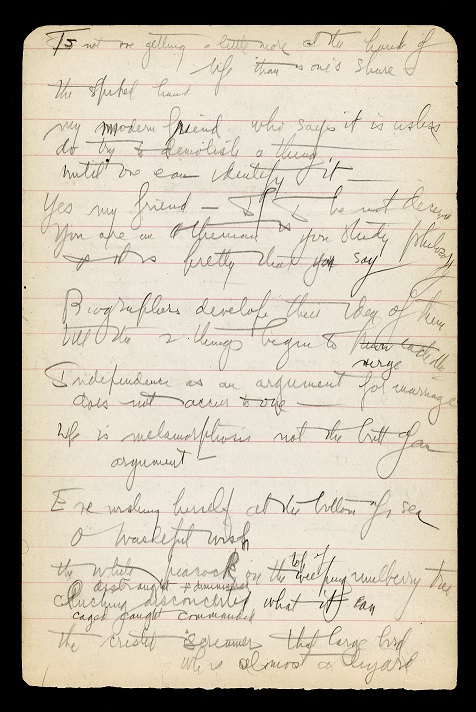 Is not one getting a little more at the hands of
life than is one's share
the hand
my modern friend who says it is useless
do try to demolish a thing
until we can identify it —
Yes my friend — If I be not
You are an you study philosophy
it is pretty that you say
Biographers develop their idea of them
till the 2 things begin to each other
merge
Independence as an argument for marriage
does not occur to one —
Life is metamorphosis not the butt of an
argument —
Eve wishing herself at the bottom of sea
A wasteful wish
the white peacock on the top of weeping mulberry tree
distraught + diminished
clucking disconcerted what it can
caged caught commanded
the crested screamer that large bird
who is almost a lizard